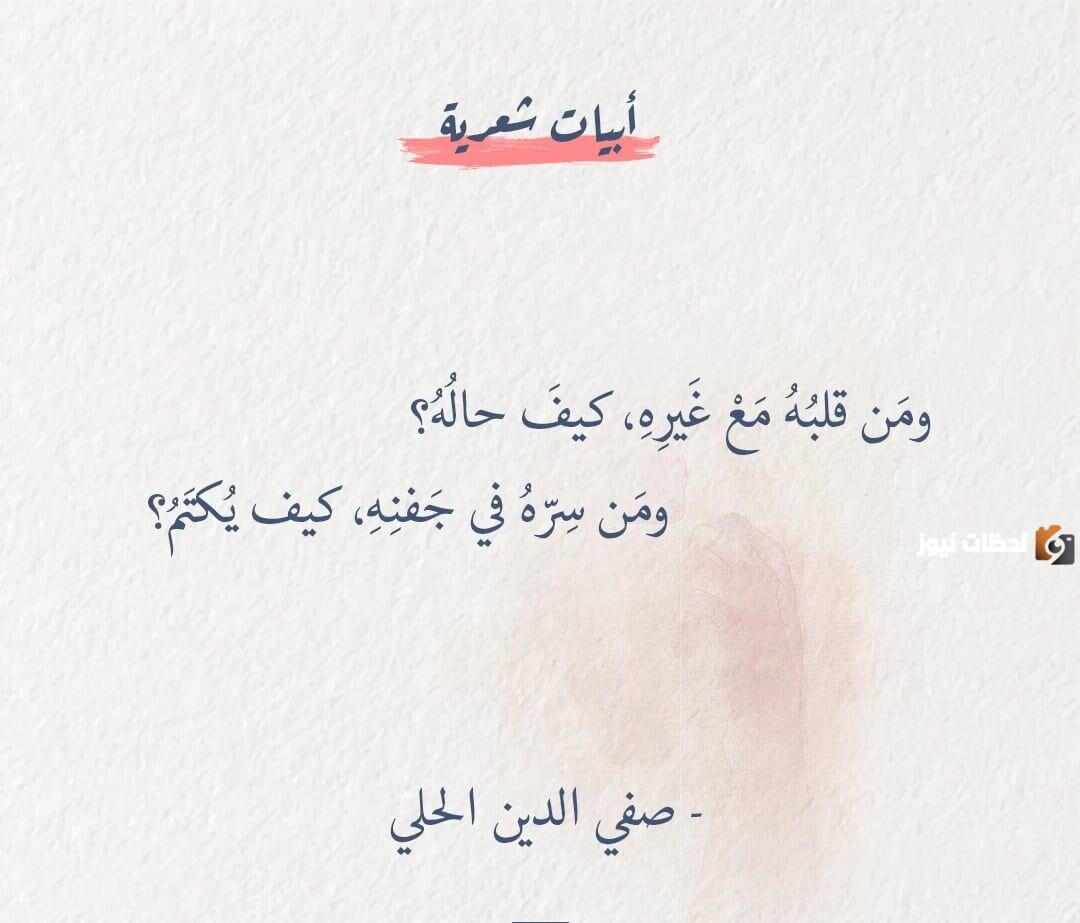 أبيات شعرية
ومَن قلبُهُ مَعْ غَيرِهِ، كيفَ حالُهُ؟
ومَن سِرّهُ في جَفنِهِ، كيف يُكتَمُ؟
لحظات نيوز
- صفي الدين الحلي